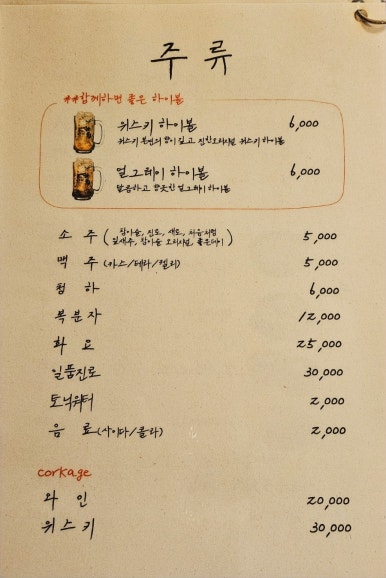 주 류
##함께하면 좋은 하이볼
위스키 하이볼 6,000
위스키 본연의 향이 깊고 진한 오리지널 위스키 하이볼
얼그레이 하이볼 6,000
달콤하고 향긋한 얼그레이 하이볼
소 주 (참이슬, 진로, 새로, 처음처럼 5,000
잎새주, 참이슬 오리지널, 좋은데이)
맥 주 (카스/테라/켈리) 5,000
청 하 6,000
복분자 12,000
화 요 25,000
일품진로 30,000
토닉워터 2,000
음 료 (사이다/콜라) 2,000
corkage
와 인 20,000
위스키 30,000